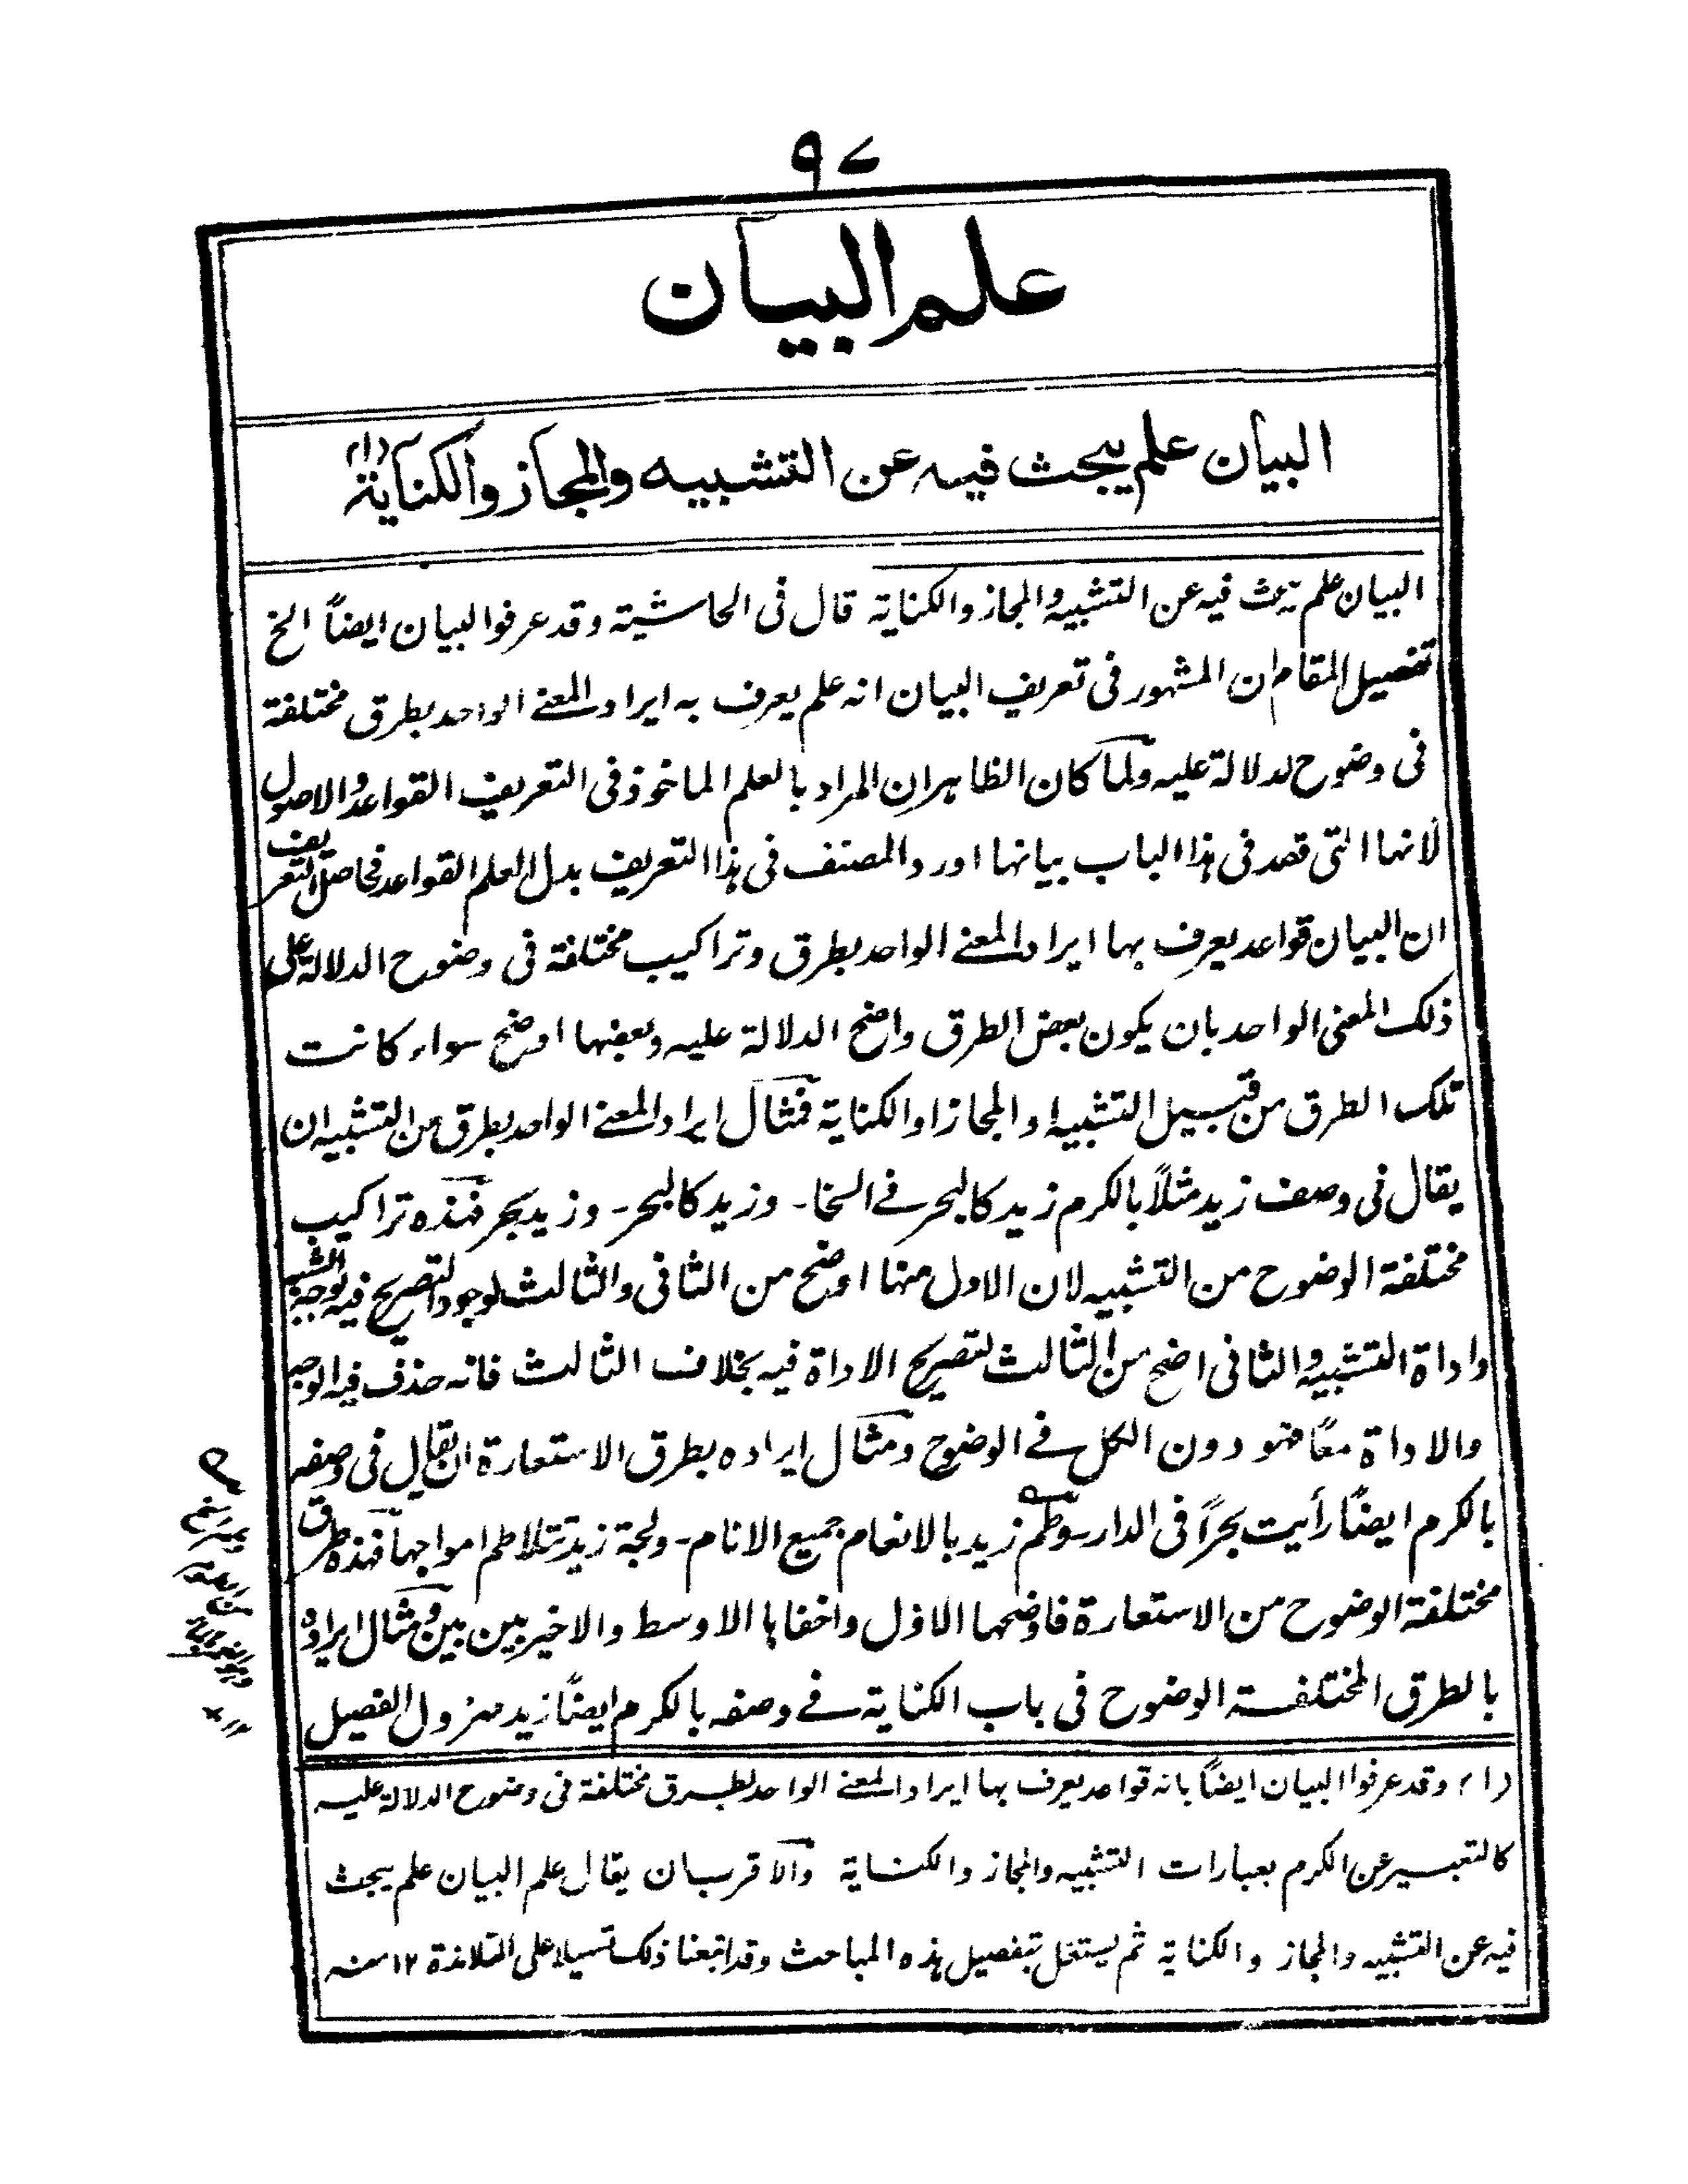 ٩٧
علم البيان
البيان علم يبحث فيه عن التشبيه والمجاز والكناية (١)
البيان علم يبحث فيه عن التشبيه والمجاز والكناية قال فى الحاشية وقد عرفوا لبيان ايضاً الخ
تفصيل المقام ان المشهور فى تعريف البيان انه علم يعرف به ايراد المعنے الواحد بطرق مختلفة
فى وضوح لدلالة عليه ولما كان الظاهران المراد بالعلم الماخوذ فى التعريف القواعد والاصول
لانها التى قصد فى هذا الباب بيانها اورد المصنف فى هذا التعريف بدل العلم القواعد فحاصل التعريف
ان البيان قواعد يعرف بها ايراد المعنے الواحد بطرق وتراكيب مختلفة فى وضوح الدلالة على
ذلك المعنى الواحد بان يكون بعض الطرق واضح الدلالة عليه وبعضها اوضح سواء كانت
تلك الطرق من قبيل التشبيه او المجاز او الكناية فمثال ايراد المعنے الواحد بطرق من التشبيه ان
يقال فى وصف زيد مثلاً بالكرم زيد كالبحر فے السخا۔ وزيد كالبحر۔ وزيد بحر فهذه تراكيب
مختلفة الوضوح من التشبيه لان الاول منها اوضح من الثانى والثالث لوجود التصريح فيه بوجه الشبه
واداة التشبيه والثانى اضح من الثالث لتصريح الاداة فيه بخلاف الثالث فانه حذف فيه الوجه
والاداة معاً فهو دون الكل فے الوضوح ومثال ايراده بطرق الاستعارة ان يقال فى وصفه
بالكرم ايضاً رأيت بحراً فى الدار وطم زيد بالانعام جميع الانام۔ ولجة زيد تتلاطم امواجها فهذه طرق
مختلفة الوضوح من الاستعارة فاوضحها الاول واخفاها الاوسط والاخير بين بين ومثال ايراده
بالطرق المختلفة الوضوح فى باب الكناية فے وصفه بالكرم ايضاً زيد مهزول الفصيل
(١) وقد عرفوا البيان ايضاً بانه قواعد يعرف بها ايراد المعنے الواحد بطرق مختلفة فى وضوح الدلالة عليه
كالتعبير عن الكرم بعبارات التشبيه والمجاز والكناية والاقرب ان يقال علم البيان علم يبحث
فيه عن التشبيه والمجاز والكناية ثم يشتغل بتفصيل هذه المباحث وقد اتبعنا ذلك تسهيلا على التلامذة ١٢ منه